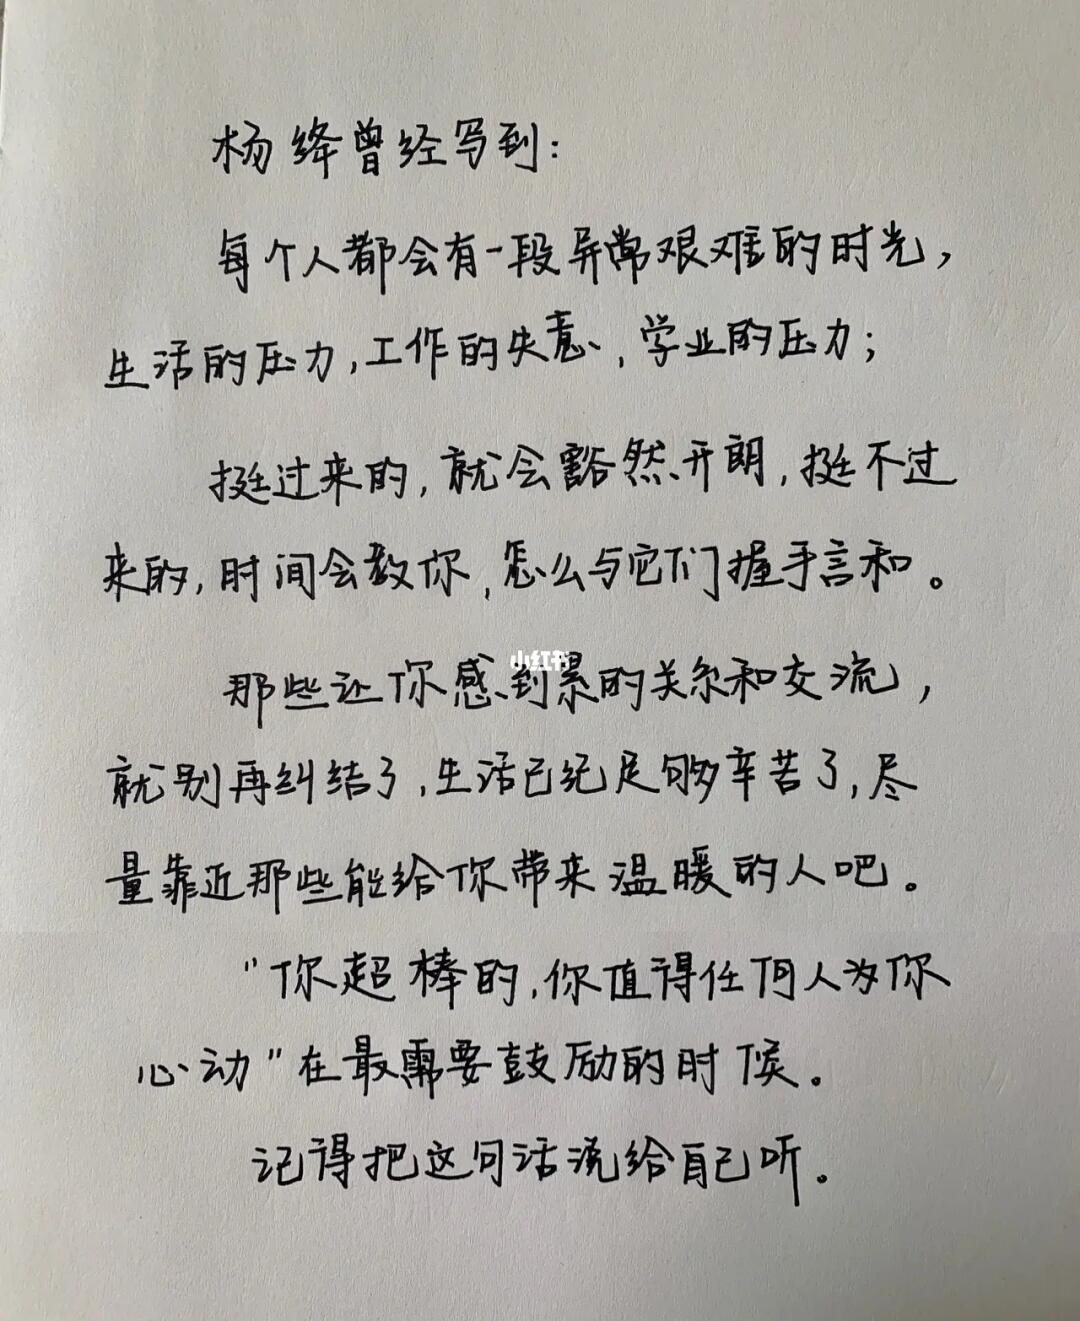 杨绛曾经写到：
每个人都会有一段异常艰难的时光，
生活的压力，工作的失意，学业的压力；
挺过来的，就会豁然开朗，挺不过
来的，时间会教你，怎么与它们握手言和。
小红书
那些让你感到累的关系和交流，
就别再纠结了，生活已经足够辛苦了，尽
量靠近那些能给你带来温暖的人吧。
"你超棒的，你值得任何人为你
心动"在最需要鼓励的时候。
记得把这句话说给自己听。